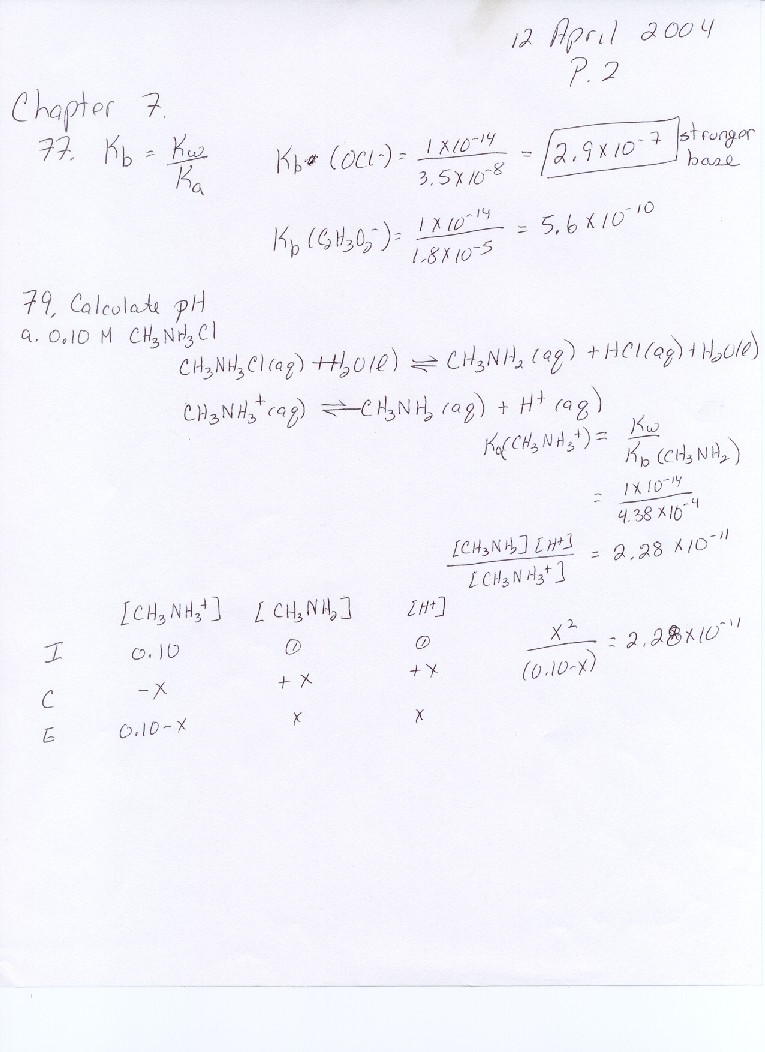 12 April 2004
P.2
Chapter 7.
77. Kb = Kw/Ka
Kb (OCl-) = 1 x 10⁻¹⁴/3.5 x 10⁻⁸ = 2.9 x 10⁻⁷ stronger base
Kb (C₂H₃O₂⁻) = 1 x 10⁻¹⁴/1.8 x 10⁻⁵ = 5.6 x 10⁻¹⁰
79. Calculate pH
a. 0.10 M CH₃NH₃Cl
CH₃NH₃Cl (aq) + H₂O(l) ⇌ CH₃NH₂ (aq) + HCl (aq) + H₂O(l)
CH₃NH₃⁺ (aq) ⇌ CH₃NH₂ (aq) + H⁺ (aq)
Ka(CH₃NH₃⁺) = Kw/Kb (CH₃NH₂)
= 1 x 10⁻¹⁴/4.38 x 10⁻⁴
[CH₃NH₂] [H⁺]/[CH₃NH₃⁺] = 2.28 x 10⁻¹¹
[CH₃NH₃⁺] [CH₃NH₂] [H⁺]
I 0.10 0 0
C -x + x + x
E 0.10-x x x
x²/(0.10-x) = 2.28 x 10⁻¹¹